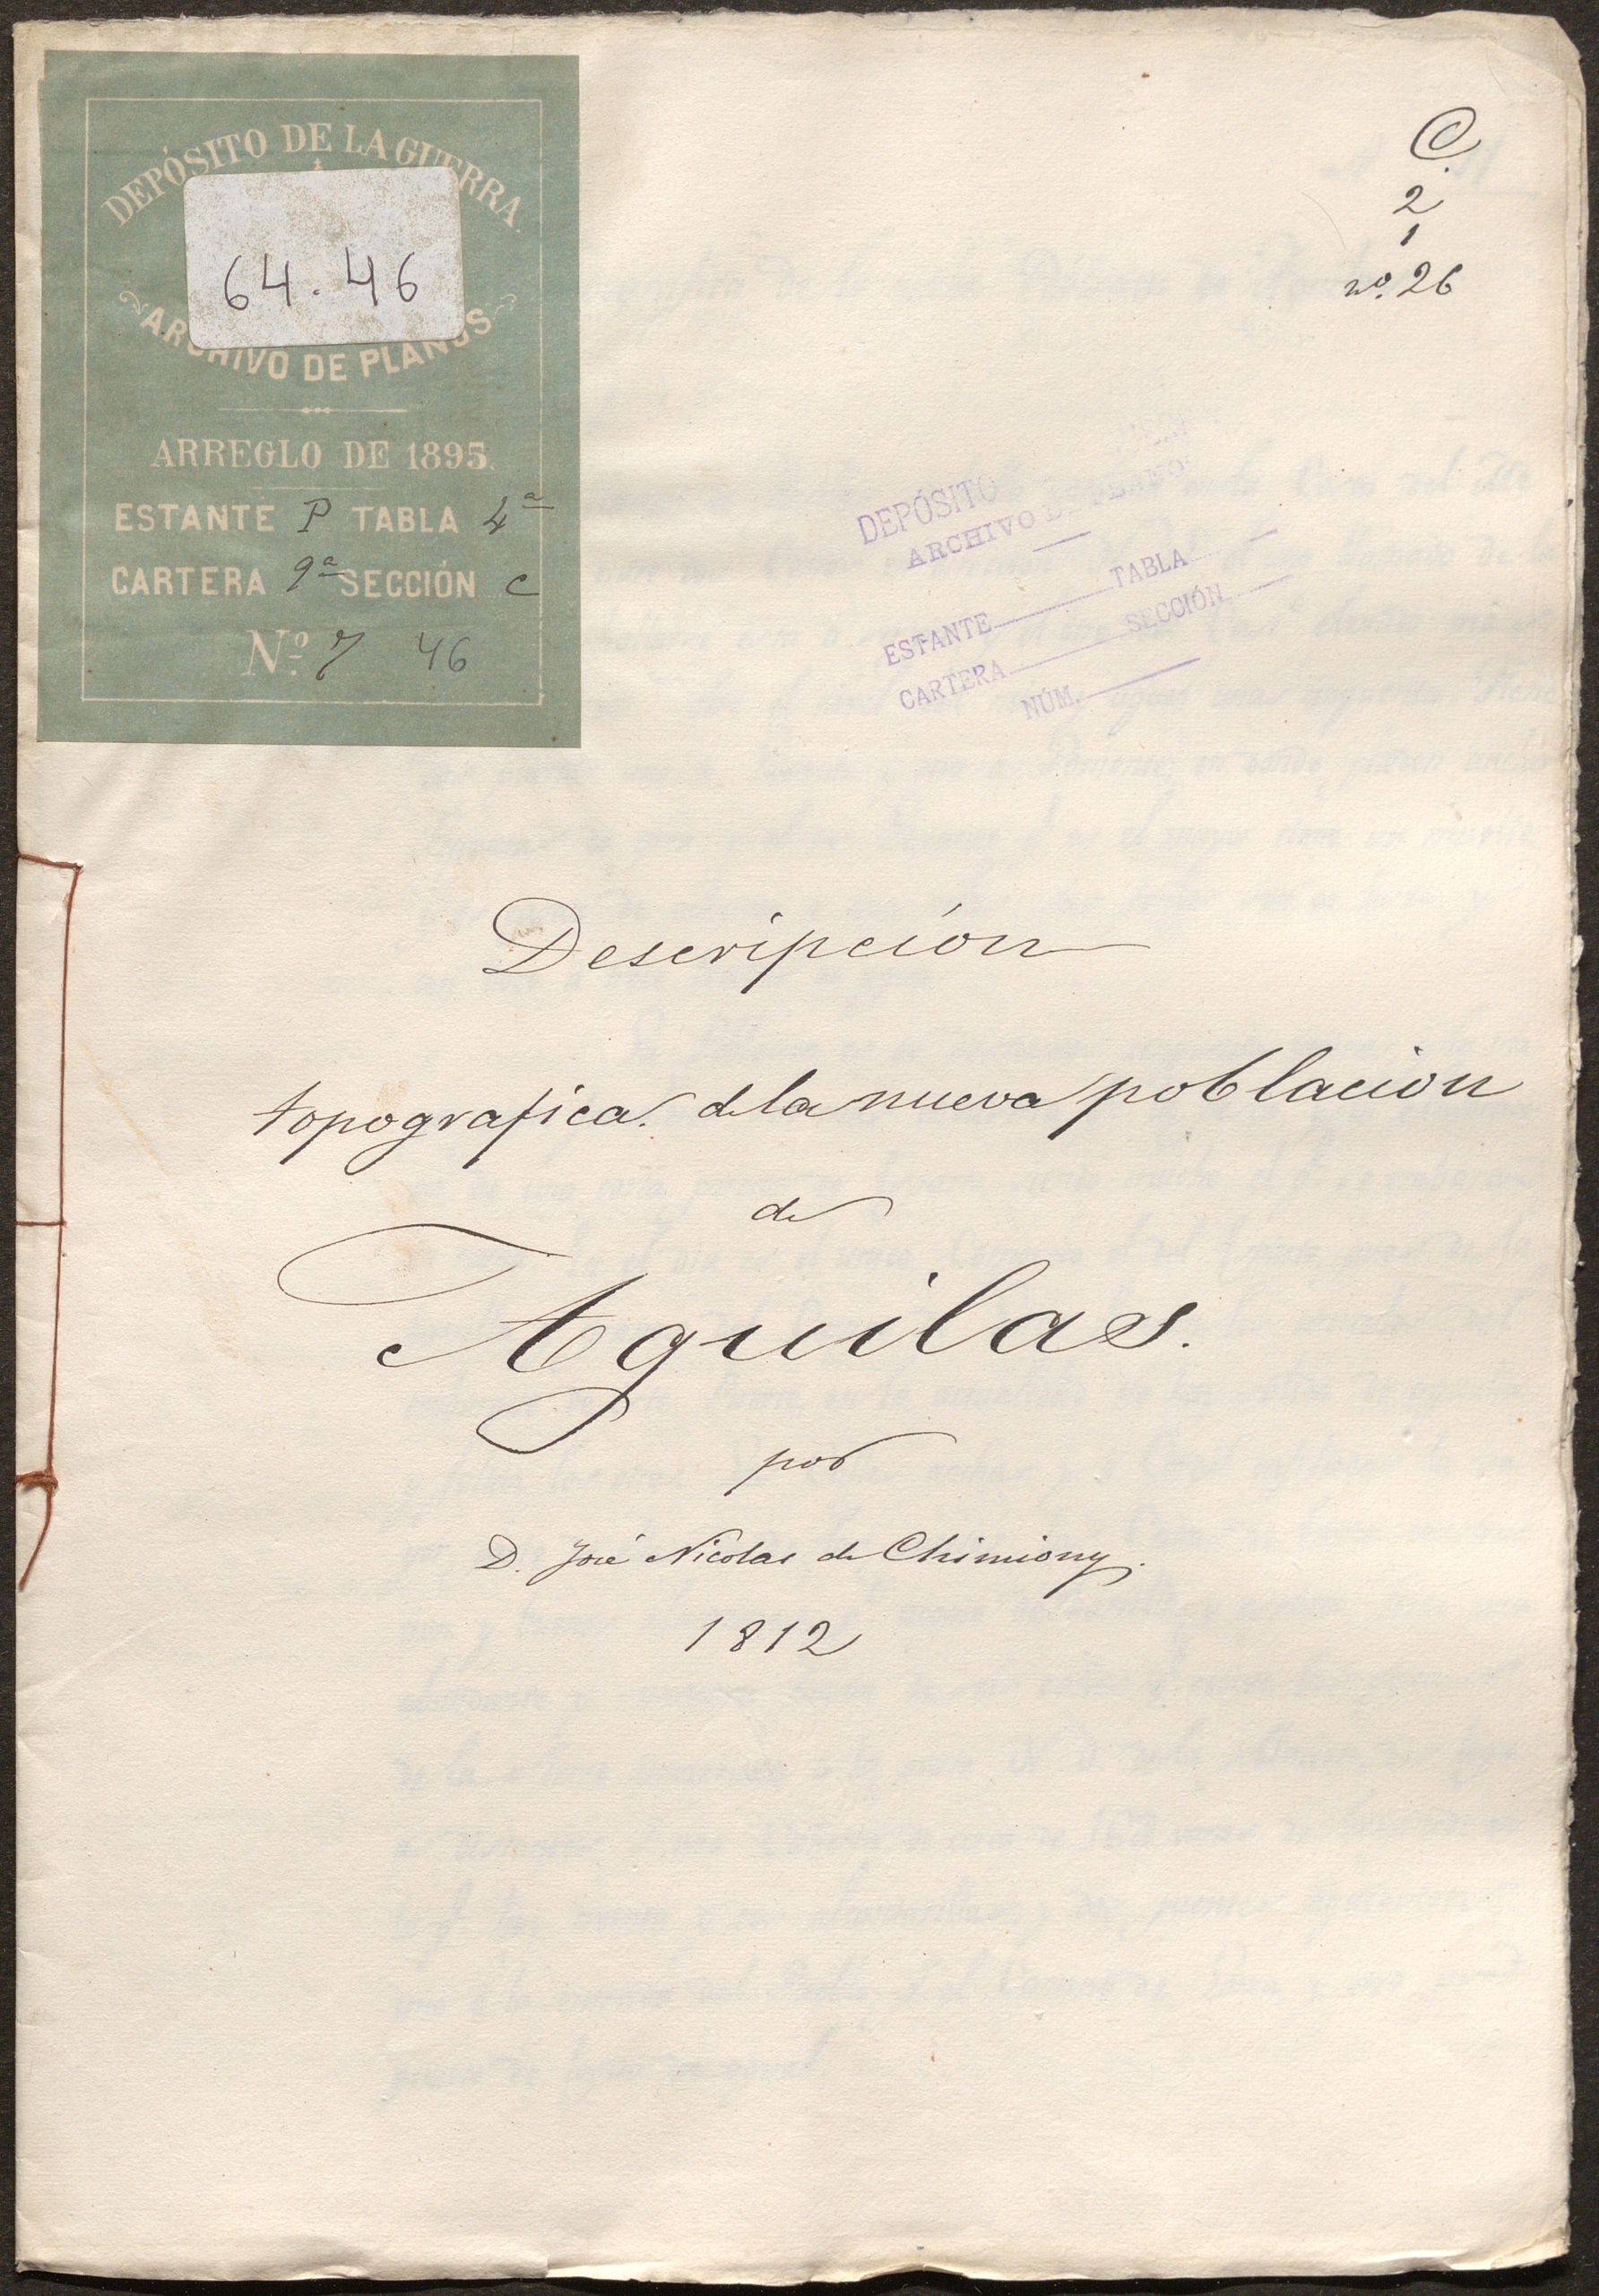 DEPÓSITO DE LA GUERRA.
64.46
ARCHIVO DE PLANOS
ARREGLO DE 1895.
ESTANTE P TABLA 4ª
CARTERA 9ª SECCIÓN C
Nº 7 46
C.
2
1
nº. 26
DEPÓSITO
ARCHIVO DE PLANOS
ESTANTE TABLA
CARTERA SECCIÓN
NÚM.
Descripción
topografica. de la nueva poblacion
de
Aguilas.
por
D. José Nicolas de Chimiony.
1812